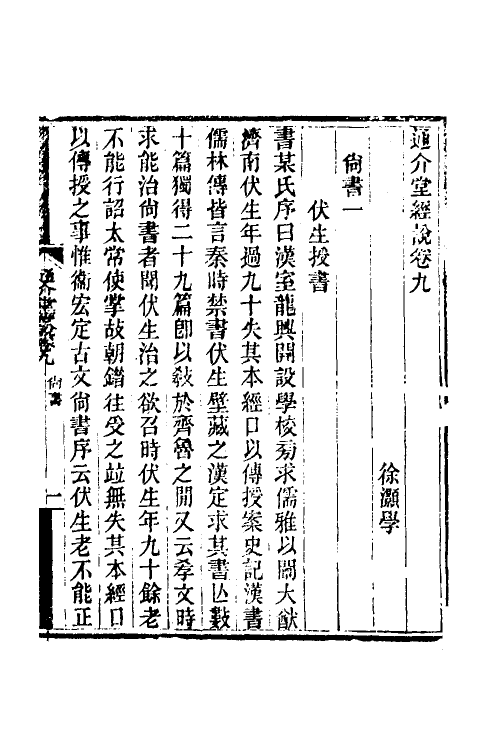 通介堂經說卷九
徐灝學
尙書一
伏生授書
書某氏序曰漢室龍興開設學校旁求儒雅以闡大猷
濟南伏生年過九十失其本經口以傳授案史記漢書
儒林傳皆言秦時禁書伏生壁藏之漢定求其書亡數
十篇獨得二十九篇卽以敎於齊魯之閒又云孝文時
求能治尙書者聞伏生治之欲召時伏生年九十餘老
不能行詔太常使掌故朝錯往受之竝無失其本經口
以傳授之事惟衞宏定古文尙書序云伏生老不能正
通介堂經說卷九 尙書 一